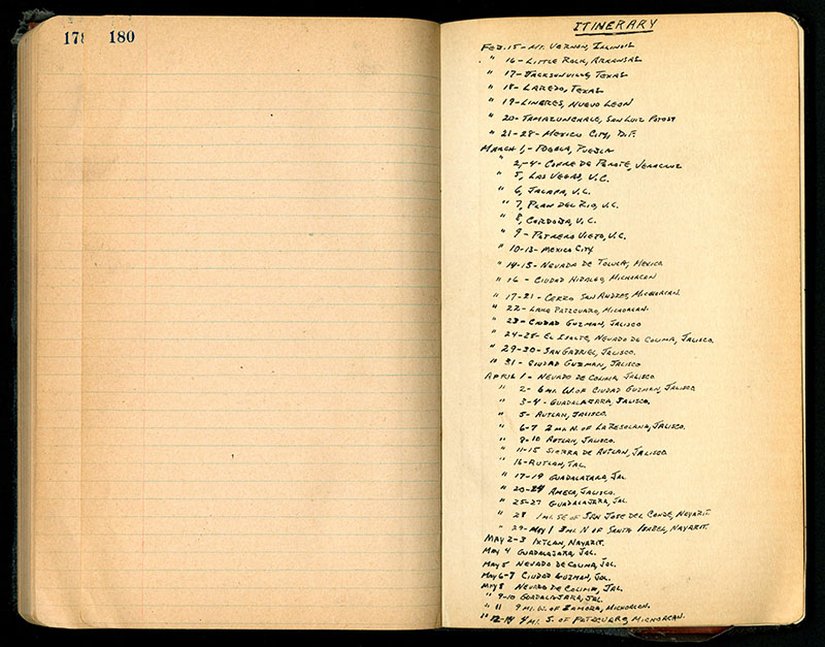 178 180
ITINERARY
FEB. 15 - MT. VERNON, ILLINOIS
" 16 - LITTLE ROCK, ARKANSAS
" 17 - JACKSONVILLE, TEXAS
" 18 - LAREDO, TEXAS
" 19 - LINARES, NUEVO LEON
" 20 - TAMAZUNCHALE, SAN LUIZ POTOSI
" 21-28 - MEXICO CITY, D.F.
MARCH 1, - PUEBLA, PUEBLA
" 2,-4 - COFRE DE PEROTE, VERACRUZ
" 5, LAS VEGAS, V.C.
" 6, JALAPA, V.C.
" 7, PLAN DEL RIO, V.C.
" 8, CORDOBA, V.C.
" 9 - POTRERO VIEJO, V.C.
" 10-13 - MEXICO CITY
" 14-15 - NEVADA DE TOLUCA, MEXICO
" 16 - CIUDAD HIDALGO, MICHOACAN
" 17-21 - CERRO SAN ANDRES, MICHOACAN.
" 22 - LAKE PATZCUARO, MICHOACAN.
" 23 - CIUDAD GUZMAN, JALISCO
" 24-28 - EL ISOLTE, NEVADO DE COLIMA, JALISCO.
" 29-30 - SAN GABRIEL, JALISCO.
" 31 - CIUDAD GUZMAN, JALISCO
APRIL 1 - NEVADO DE COLIMA, JALISCO
" 2 - 6 MI. W. OF CIUDAD GUZMAN, JALISCO
" 3-4 - GUADALAJARA, JALISCO.
" 5 - AUTLAN, JALISCO.
" 6-7 2 MI. N. OF LA RESOLANA, JALISCO.
" 8-10 AUTLAN, JALISCO.
" 11-15 SIERRA DE AUTLAN, JALISCO
" 16 - AUTLAN, JAL.
" 17-19 GUADALAJARA, JAL
" 20-24 AMECA, JALISCO.
" 25-27 GUADALAJARA, JAL.
" 28 1 MI. SE OF SAN JOSE DEL CONDE, NAYARIT.
" 29-MAY 1 3 MI. N OF SANTA ISABEL, NAYARIT.
MAY 2-3 IXTLAN, NAYARIT.
MAY 4 GUADALAJARA, JAL.
MAY 5 NEVADO DE COLIMA, JAL.
MAY 6-7 CIUDAD GUZMAN, JAL.
MAY 8 NEVADO DE COLIMA, JAL.
" 9-10 GUADALAJARA, JAL.
" 11 9 MI. W. OF ZAMORA, MICHOACAN.
" 12-14 4 MI. S. OF PATZCUARO, MICHOACAN.